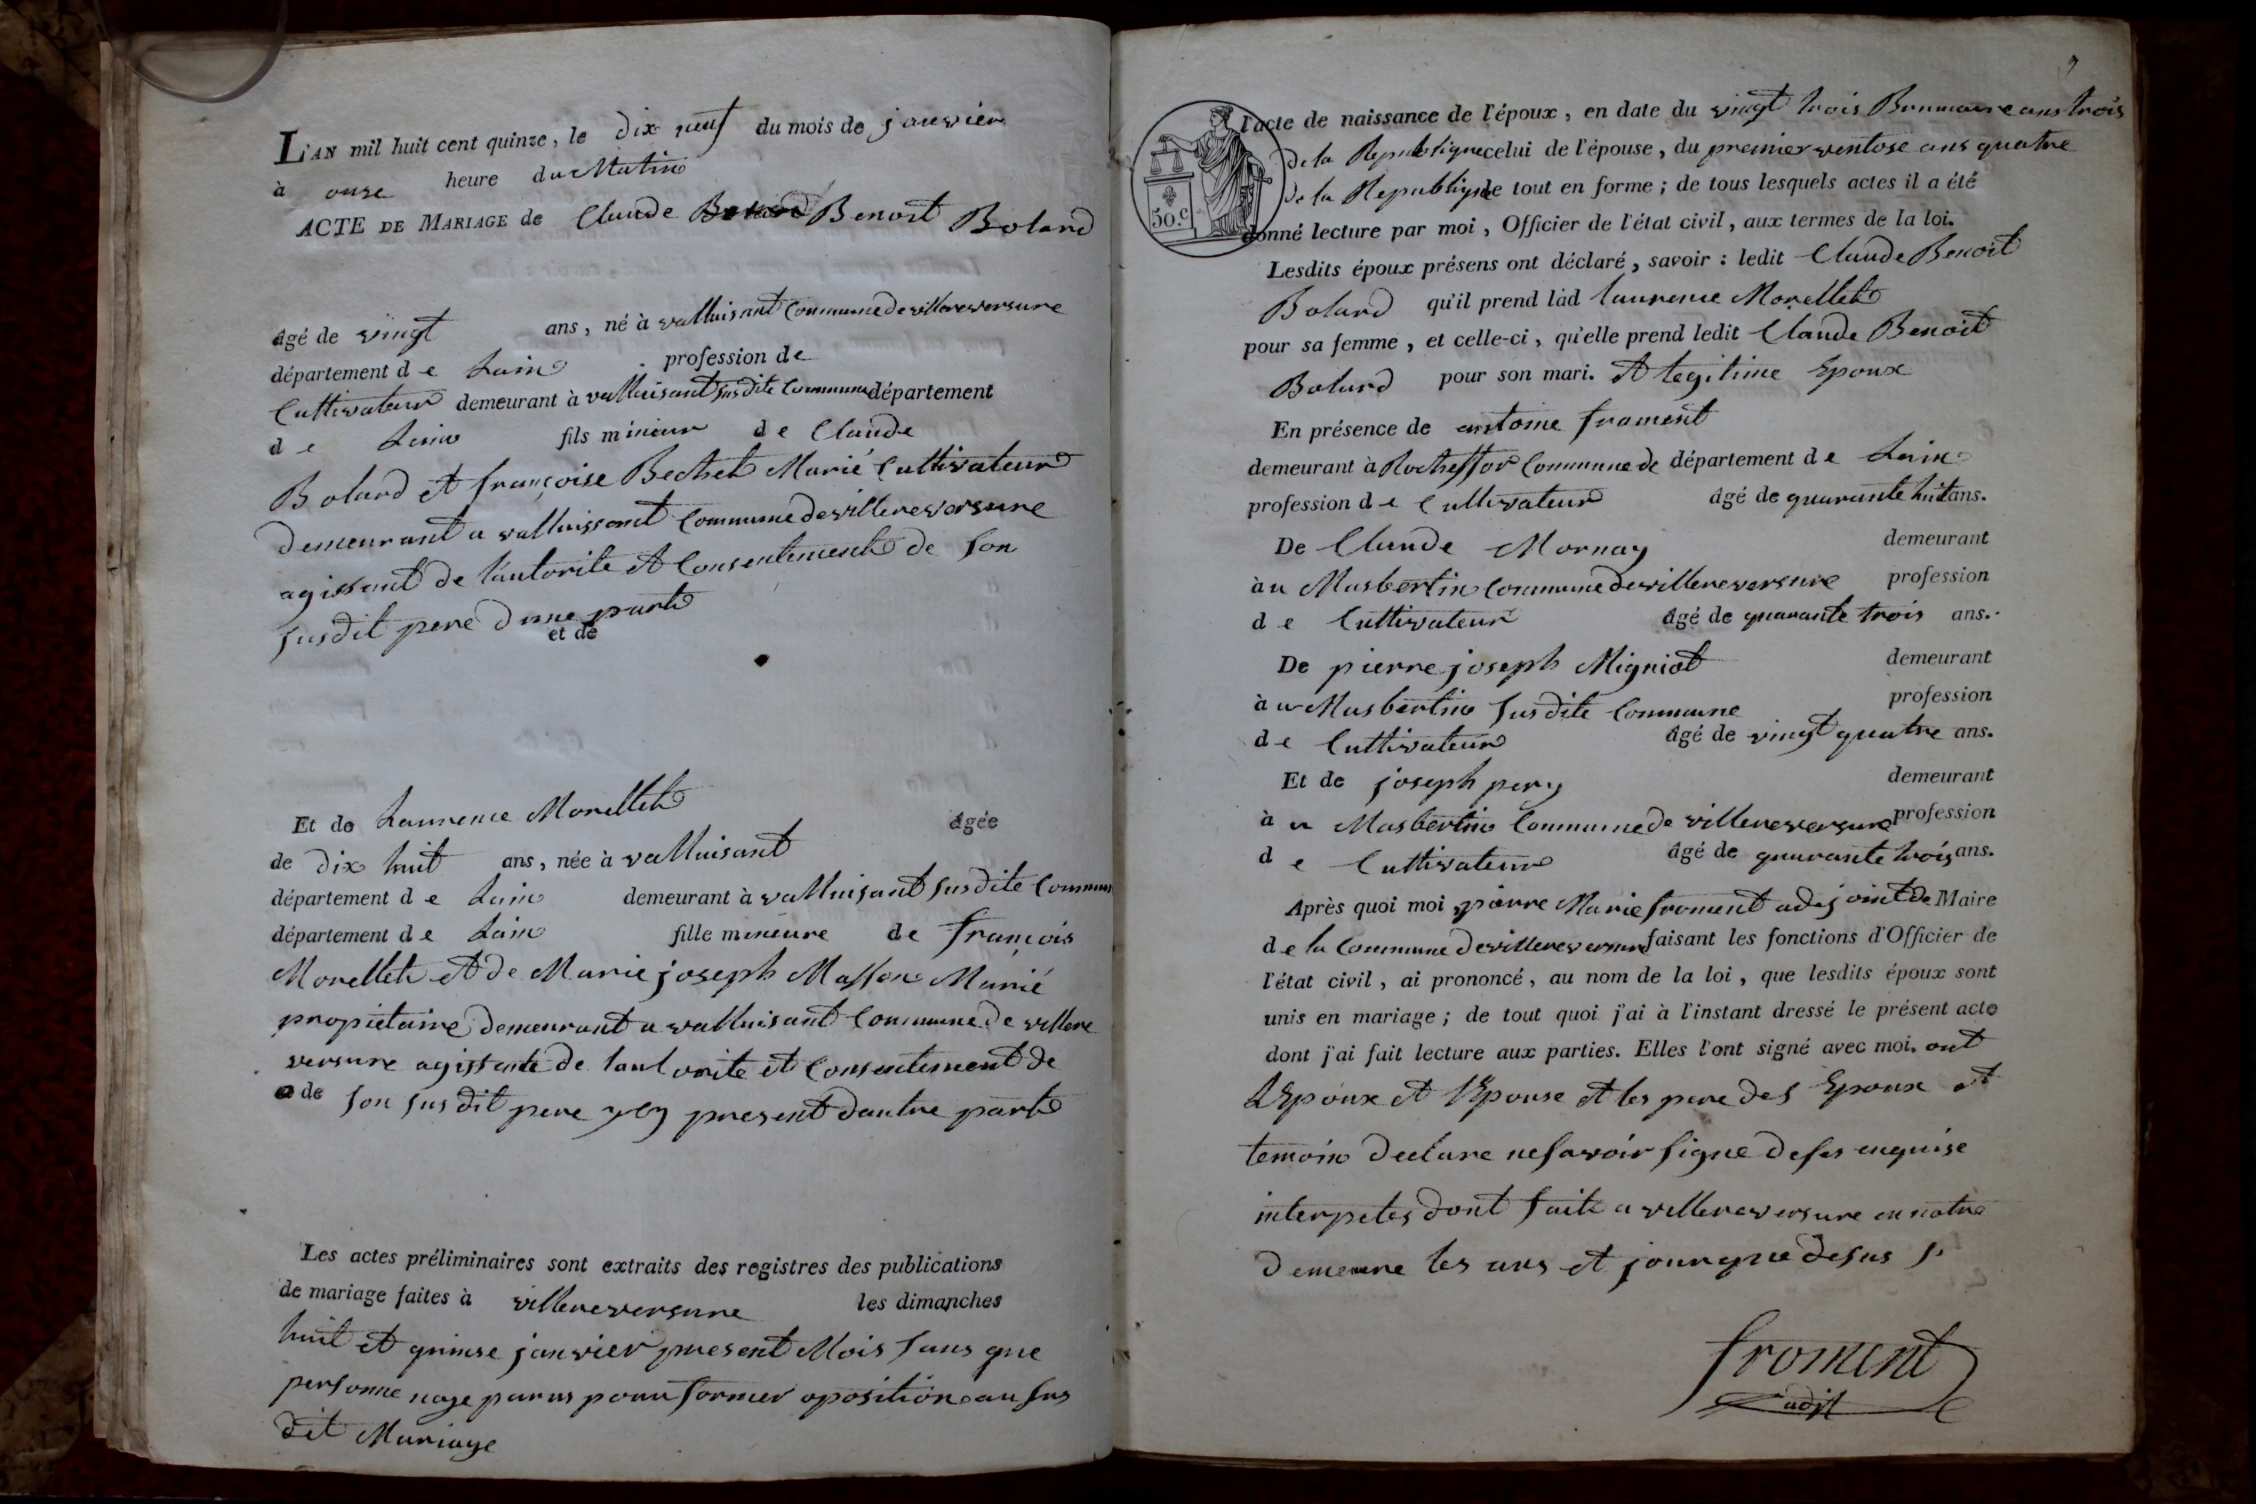 L'AN mil huit cent quinze, le dix neuf du mois de janvier
à onse heure du Matin
ACTE DE MARIAGE de Claude Benoit Bolard
âgé de vingt ans, né à valluisant Commune de villereversure
département de Lain profession de
Cultivateur demeurant à valluisant susdite Commune département
de Lain fils mineur de Claude
Bolard et françoise Bechet Marié Cultivateur
demeurant a valluissant Commune de villereversure
agissant de l'autorite et Consentement de son
susdit pere d'une part
et de
Et de Laurence Morellet âgée
de dix huit ans, née à valluisant
département de Lain demeurant à valluisant susdite Commune
département de Lain fille mineure de francois
Morellet et de Marie joseph Masson Marié
propietaire demeurant a valluisant Commune de villere
versure agissante de lautorite et Consentement de
de son susdit pere ycy present dautre part
Les actes préliminaires sont extraits des registres des publications
de mariage faites à villereversure les dimanches
huit et quinse janvier present Mois sans que
personne naye parus pour former oposition au sus
dit Mariage
50.c
l'acte de naissance de l'époux, en date du vingt trois Brumaire ans trois
de la Republique celui de l'épouse, du premier ventose ans quatre
de la Republique le tout en forme; de tous lesquels actes il a été
donné lecture par moi, Officier de l'état civil, aux termes de la loi.
Lesdits époux présens ont déclaré, savoir : ledit Claude Benoit
Bolard qu'il prend lad laurence Morellet
pour sa femme, et celle-ci, qu'elle prend ledit Claude Benoit
Bolard pour son mari. Et legitime Epoux
En présence de antoine froment
demeurant à Rocheffor Commune de département de Lain
profession de Cultivateur âgé de quarante huit ans.
De Claude Mornay demeurant
à u Masbertin Commune de villereversure profession
de Cultivateur âgé de quarante trois ans.
De pierre joseph Migniot demeurant
à u Masbertin susdite Commune profession
de Cultivateur âgé de vingt quatre ans.
Et de joseph pery demeurant
à u Masbertin Commune de villereversure profession
de Cultivateur âgé de quarante trois ans.
Après quoi moi pierre Marie froment adejoint de Maire
de la Commune de villereversure faisant les fonctions d'Officier de
l'état civil, ai prononcé, au nom de la loi, que lesdits époux sont
unis en mariage; de tout quoi j'ai à l'instant dressé le présent acte
dont j'ai fait lecture aux parties. Elles l'ont signé avec moi. ont
LEpoux et lEpouse et les pere des Epoux et
temoin declare ne savoir signe de ses enquise
interpetes dont fait a villereversure en notre
demeure les ans et jour que desus
froment
adjt